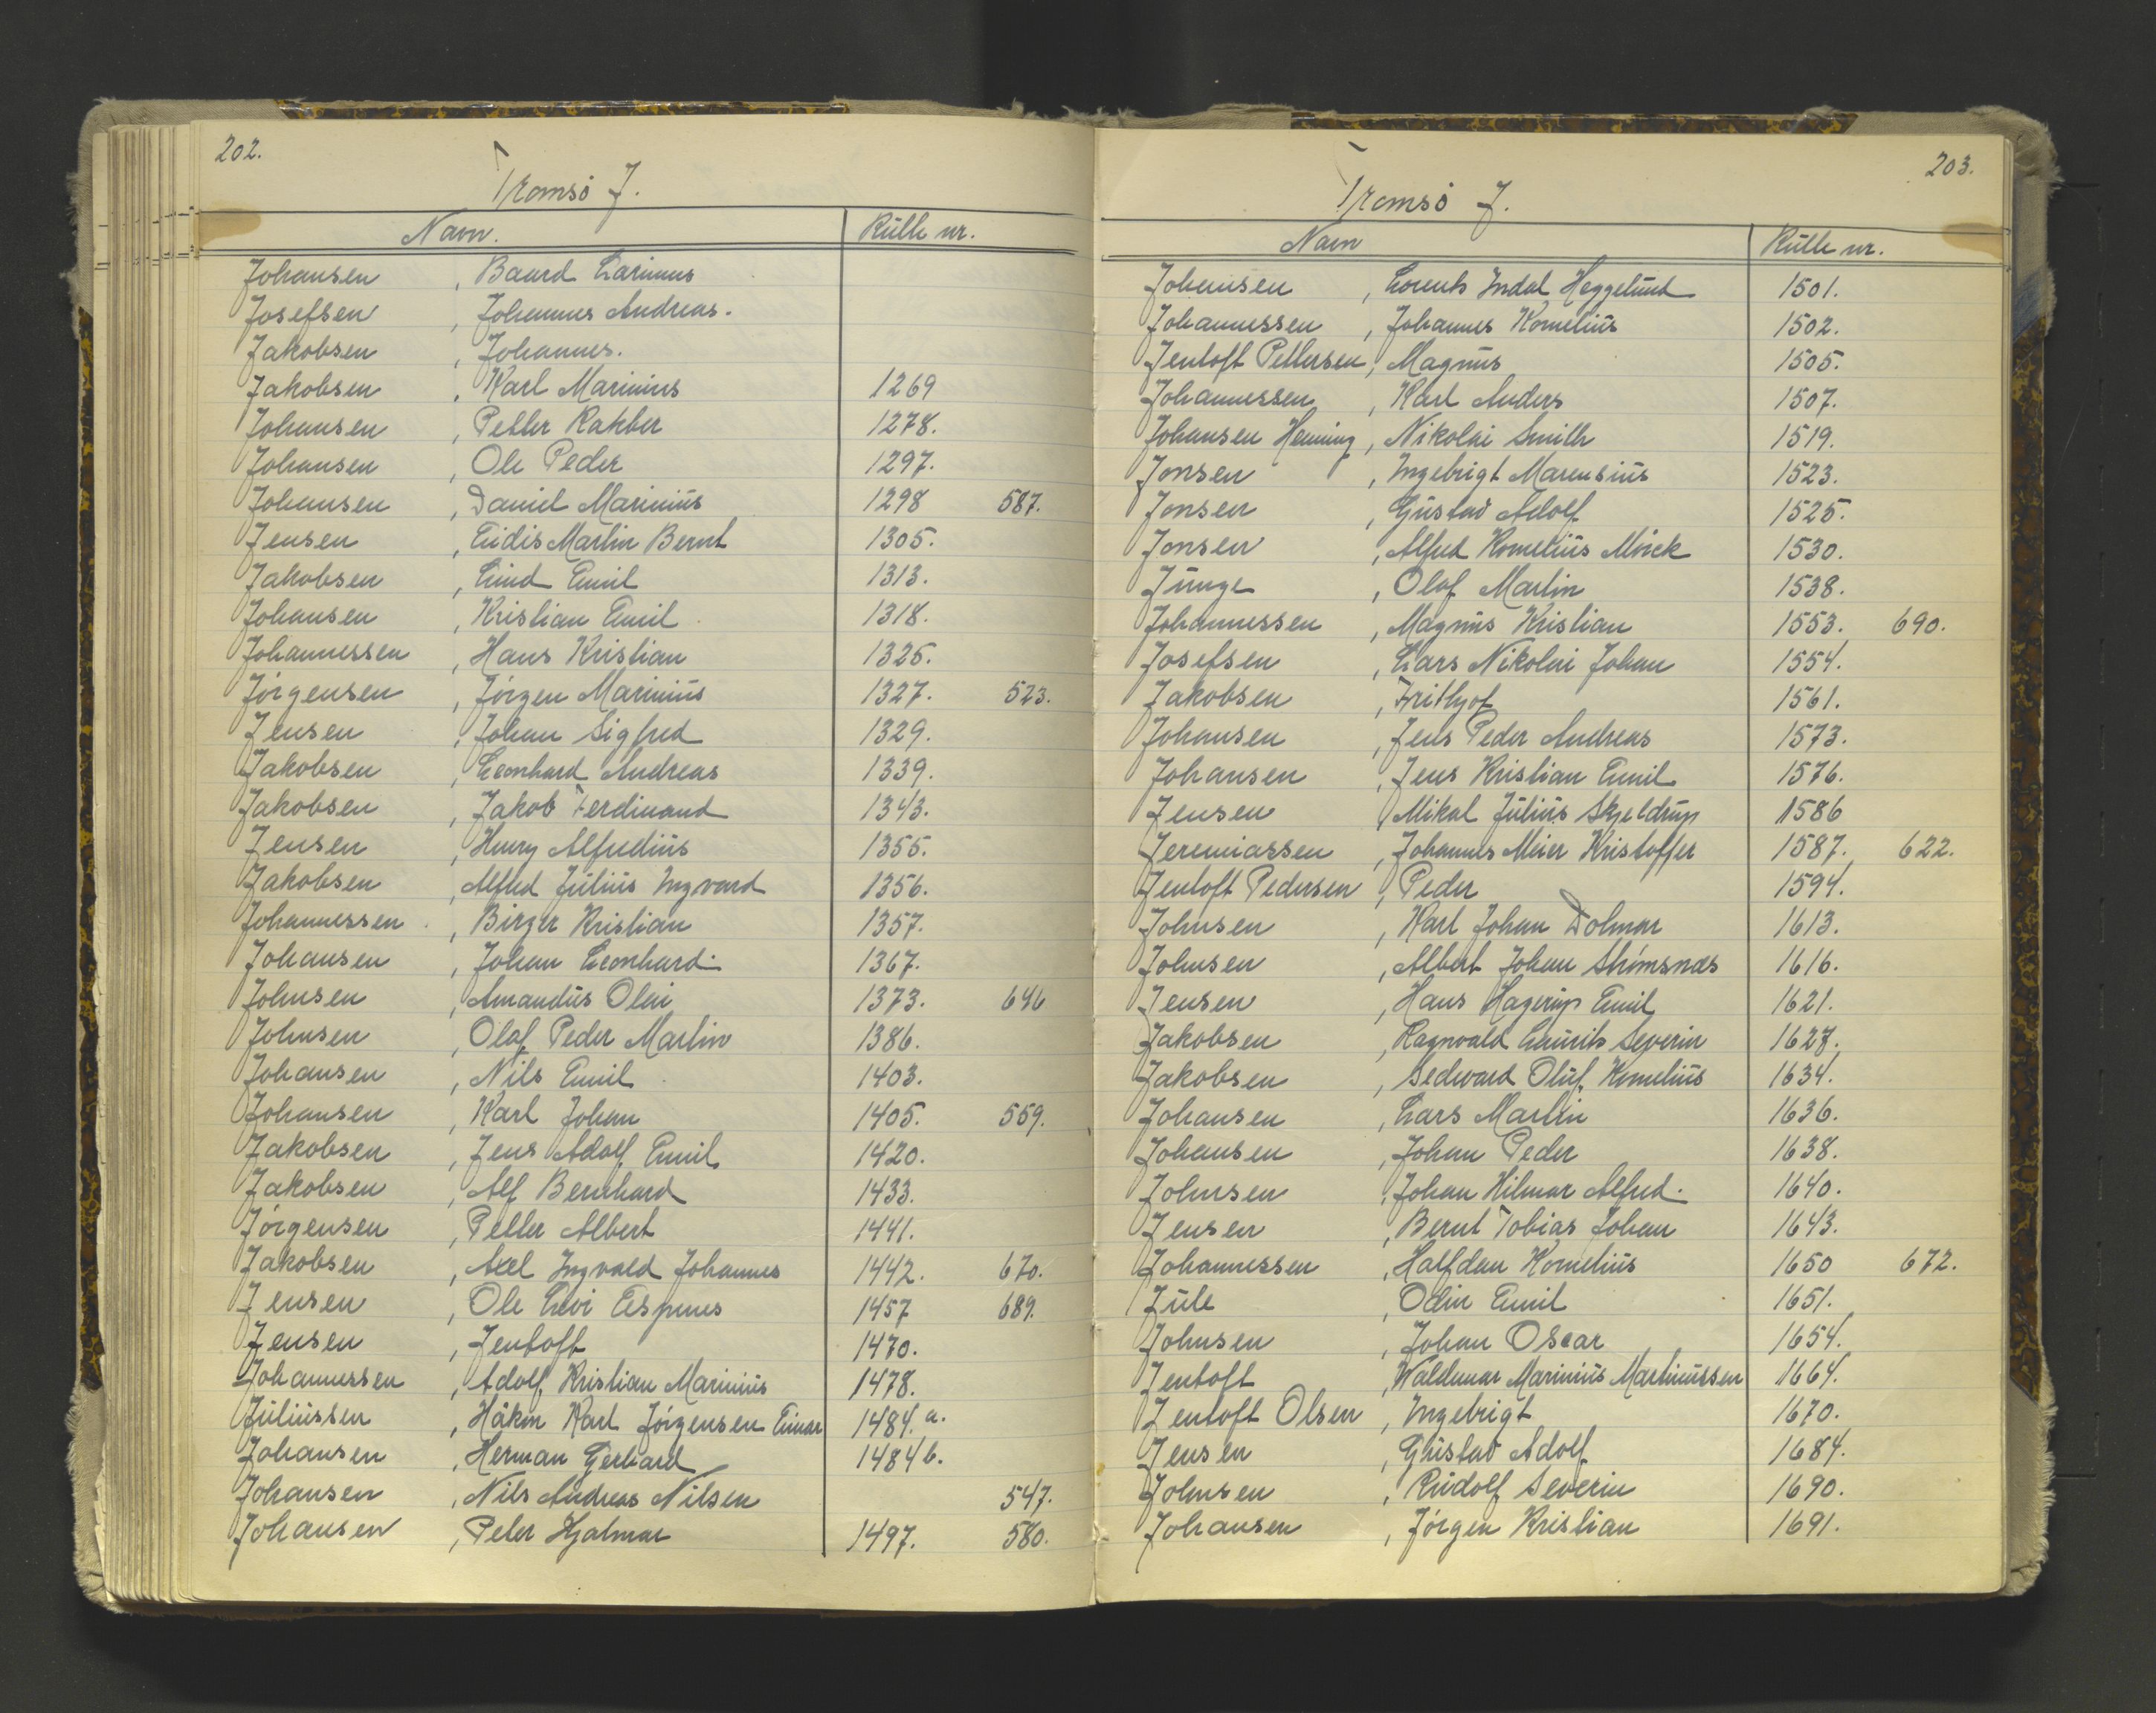 202.
Tromsö J.
Navn. Rulle nr.
Johansen , Baard Larinus
Josefsen , Johannus Andreas.
Jakobsen , Johannes.
Jakobsen , Karl Marinius 1269
Johansen , Petter 1278.
Johansen , Ole Peder 1297.
Johansen , Daniel Marinius 1298 587.
Jensen , Martin Bernt 1305.
Jakobsen , Emil 1313.
Johansen , Kristian Emil 1318.
Johannessen , Hans Kristian 1325.
Jörgensen , Jörgen Marinius 1327. 523.
Jensen , Johan Sigfred 1329.
Jakobsen , Leonhard Andreas 1339.
Jakobsen , Jakob Ferdinand 1343.
Jensen , Henry Alfredius 1355.
Jakobsen , Alfred Julius Ingvard 1356.
Johannessen , Birger Kristian 1357.
Johansen , Johan Leonhard. 1367.
Johnsen , Amandus Olai 1373. 646
Johnsen , Olaf Peder Martin 1386.
Johansen , Nils Emil 1403.
Johansen , Karl Johan 1405. 559.
Jakobsen , Jens Adolf Emil 1420.
Jakobsen , Alf Bernhard 1433.
Jörgensen , Petter Albert 1441.
Jakobsen , Axel Ingvald Johannes 1442. 670.
Jensen , Ole Levi 1457 689.
Jensen , Jentoft 1470.
Johannessen , Adolf Kristian Marinius 1478.
Juliussen , Håkon Karl Jörgensen Einar 1484. a.
Johansen , Herman Gerhard 1484 b.
Johansen , Nils Andreas Nilsen 547.
Johansen , Peter Hjalmar 1497. 580.
203.
Tromsö J.
Navn Rulle nr.
Johansen , Lorents Indal Heggelund 1501.
Johannessen , Johannes Kornelius 1502.
Jentoft Pettersen , Magnus 1505.
Johannessen , Karl Anders 1507.
Johansen Henning , Nikolai Smith 1519.
Jonsen , Ingebrigt Marensius 1523.
Jonsen , Gustav Adolf 1525.
Jonsen , Alfred Kornelius Mörck 1530.
Junge , Olaf Martin 1538.
Johannessen , Magnus Kristian 1553. 690.
Josefsen , Lars Nikolai Johan 1554.
Jakobsen , Frithjof 1561.
Johansen , Jens Peder Andreas 1573.
Johansen , Jens Kristian Emil 1576.
Jensen , Mikal Julius Skjeldrup 1586
Jeremiassen , Johannes Meier Kristoffer 1587. 622.
Jentoft Pedersen , Peder 1594.
Johnsen , Karl Johan Dolmar 1613.
Johnsen , Albert Johan Strömsnæs 1616.
Jensen , Hans Hagerup Emil 1621.
Jakobsen , Ragnvald Laurits Severin 1627.
Jakobsen , Sedvard Oluf Kornelius 1634.
Johansen , Lars Martin 1636.
Johansen , Johan Peder 1638.
Johnsen , Johan Hilmar Alfred. 1640.
Jensen , Bernt Tobias Johan 1643.
Johannessen , Halfdan Kornelius 1650 672.
Jule , Odin Emil 1651.
Johnsen , Johan Oscar 1654.
Jentoft , Waldemar Marinius Martinussen 1664.
Jentoft Olsen , Ingebrigt 1670.
Jensen , Gustav Adolf 1684.
Johnsen , Rudolf Severin 1690.
Johansen , Jörgen Kristian 1691.